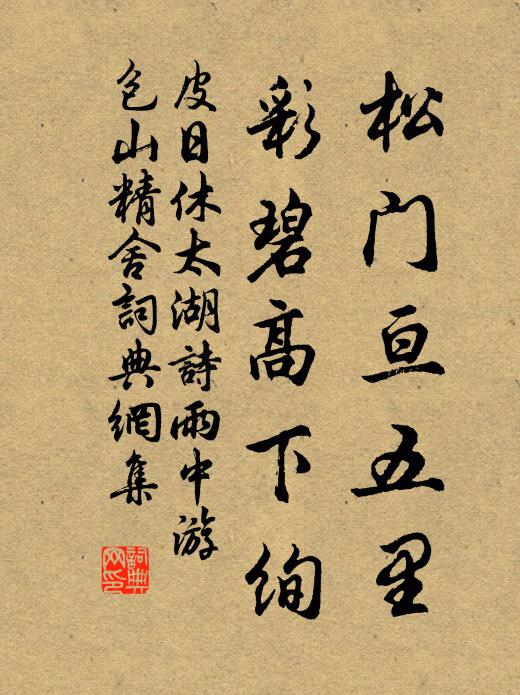 松门亘五里
彩碧高下绚
皮日休太湖詩雨中游
包山精舍詞典網集
詞典网印